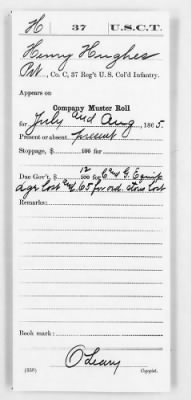 H 37 U.S.C.T.
Henry Hughes
Pvt, Co. C, 37 Reg't U. S. Col'd Infantry.
Appears on
Company Muster Roll
for July and Aug, 1865.
Present or absent present
Stoppage, $ 100 for
Due Gov't, $ 12/100 for C and G. Equip
lost 65 for ord. stores lost
Remarks:
Book mark:
O'Leary
(358) Copyist.